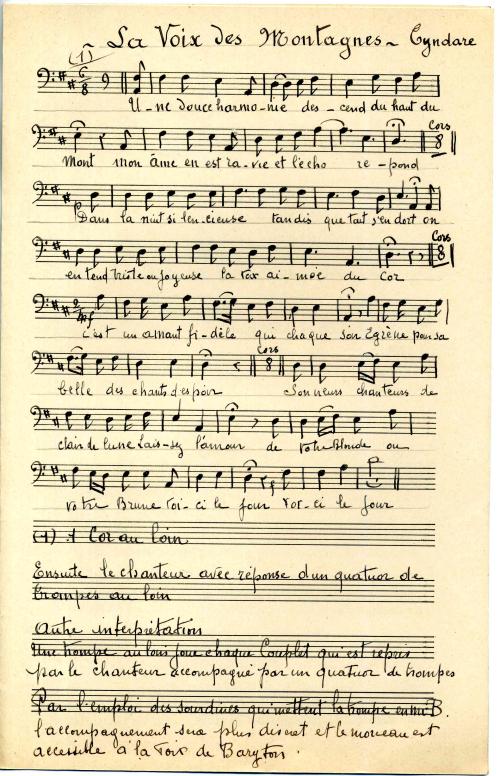 La Voix des Montagnes ~ Cyndare
(1)
U-ne douce harmo-nie des-cend du haut du
Cors
8
Mont mon âme en est ra-vie et l'écho re-pond
Dans la nuit si len-cieuse tandis que tout s'en dort on
Cors
8
entend triste ou joyeuse la voix ai-mée du Cor
c'est un amant fi-dèle qui chaque soir Egrène pour sa
Cors
8
belle des chants d'espoir Sonneurs chanteurs de
clair de lune lais-sez l'amour de votre blonde ou
votre Brune Voi-ci le jour Voi-ci le jour
(1) 1 Cor au loin
Ensuite le chanteur avec réponse d'un quatuor de
trompes au loin
Autre interprétation
Une trompe au loin joue chaque Couplet qui est repris
par le chanteur accompagné par un quatuor de trompes
Par l'emploi des sourdines qui mettent la trompe en mi B.
l'accompagnement sera plus discret et le morceau est
accessible à la Voix de Baryton.